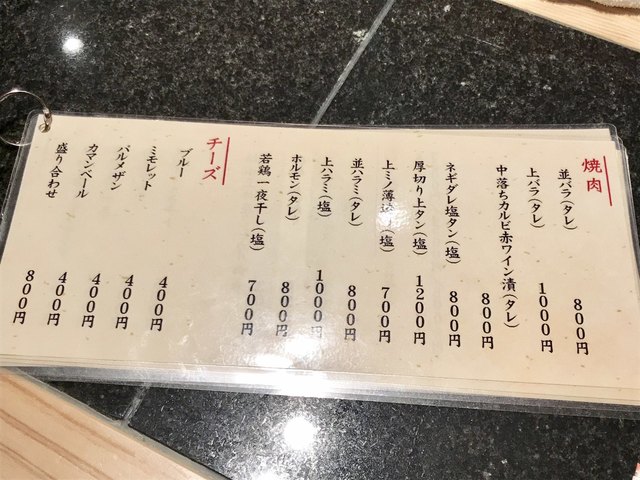 焼肉
並バラ(タレ) 800円
上バラ(タレ) 1000円
中落ちカルビ赤ワイン漬(タレ) 800円
ネギダレ塩タン(塩) 800円
厚切り上タン(塩) 1200円
上ミノ薄 (塩) 700円
並ハラミ(タレ) 800円
上ハラミ(塩) 1000円
ホルモン(タレ) 800円
若鶏一夜干し(塩) 700円
チーズ
ブルー 400円
ミモレット 400円
パルメザン 400円
カマンベール 400円
盛り合わせ 800円